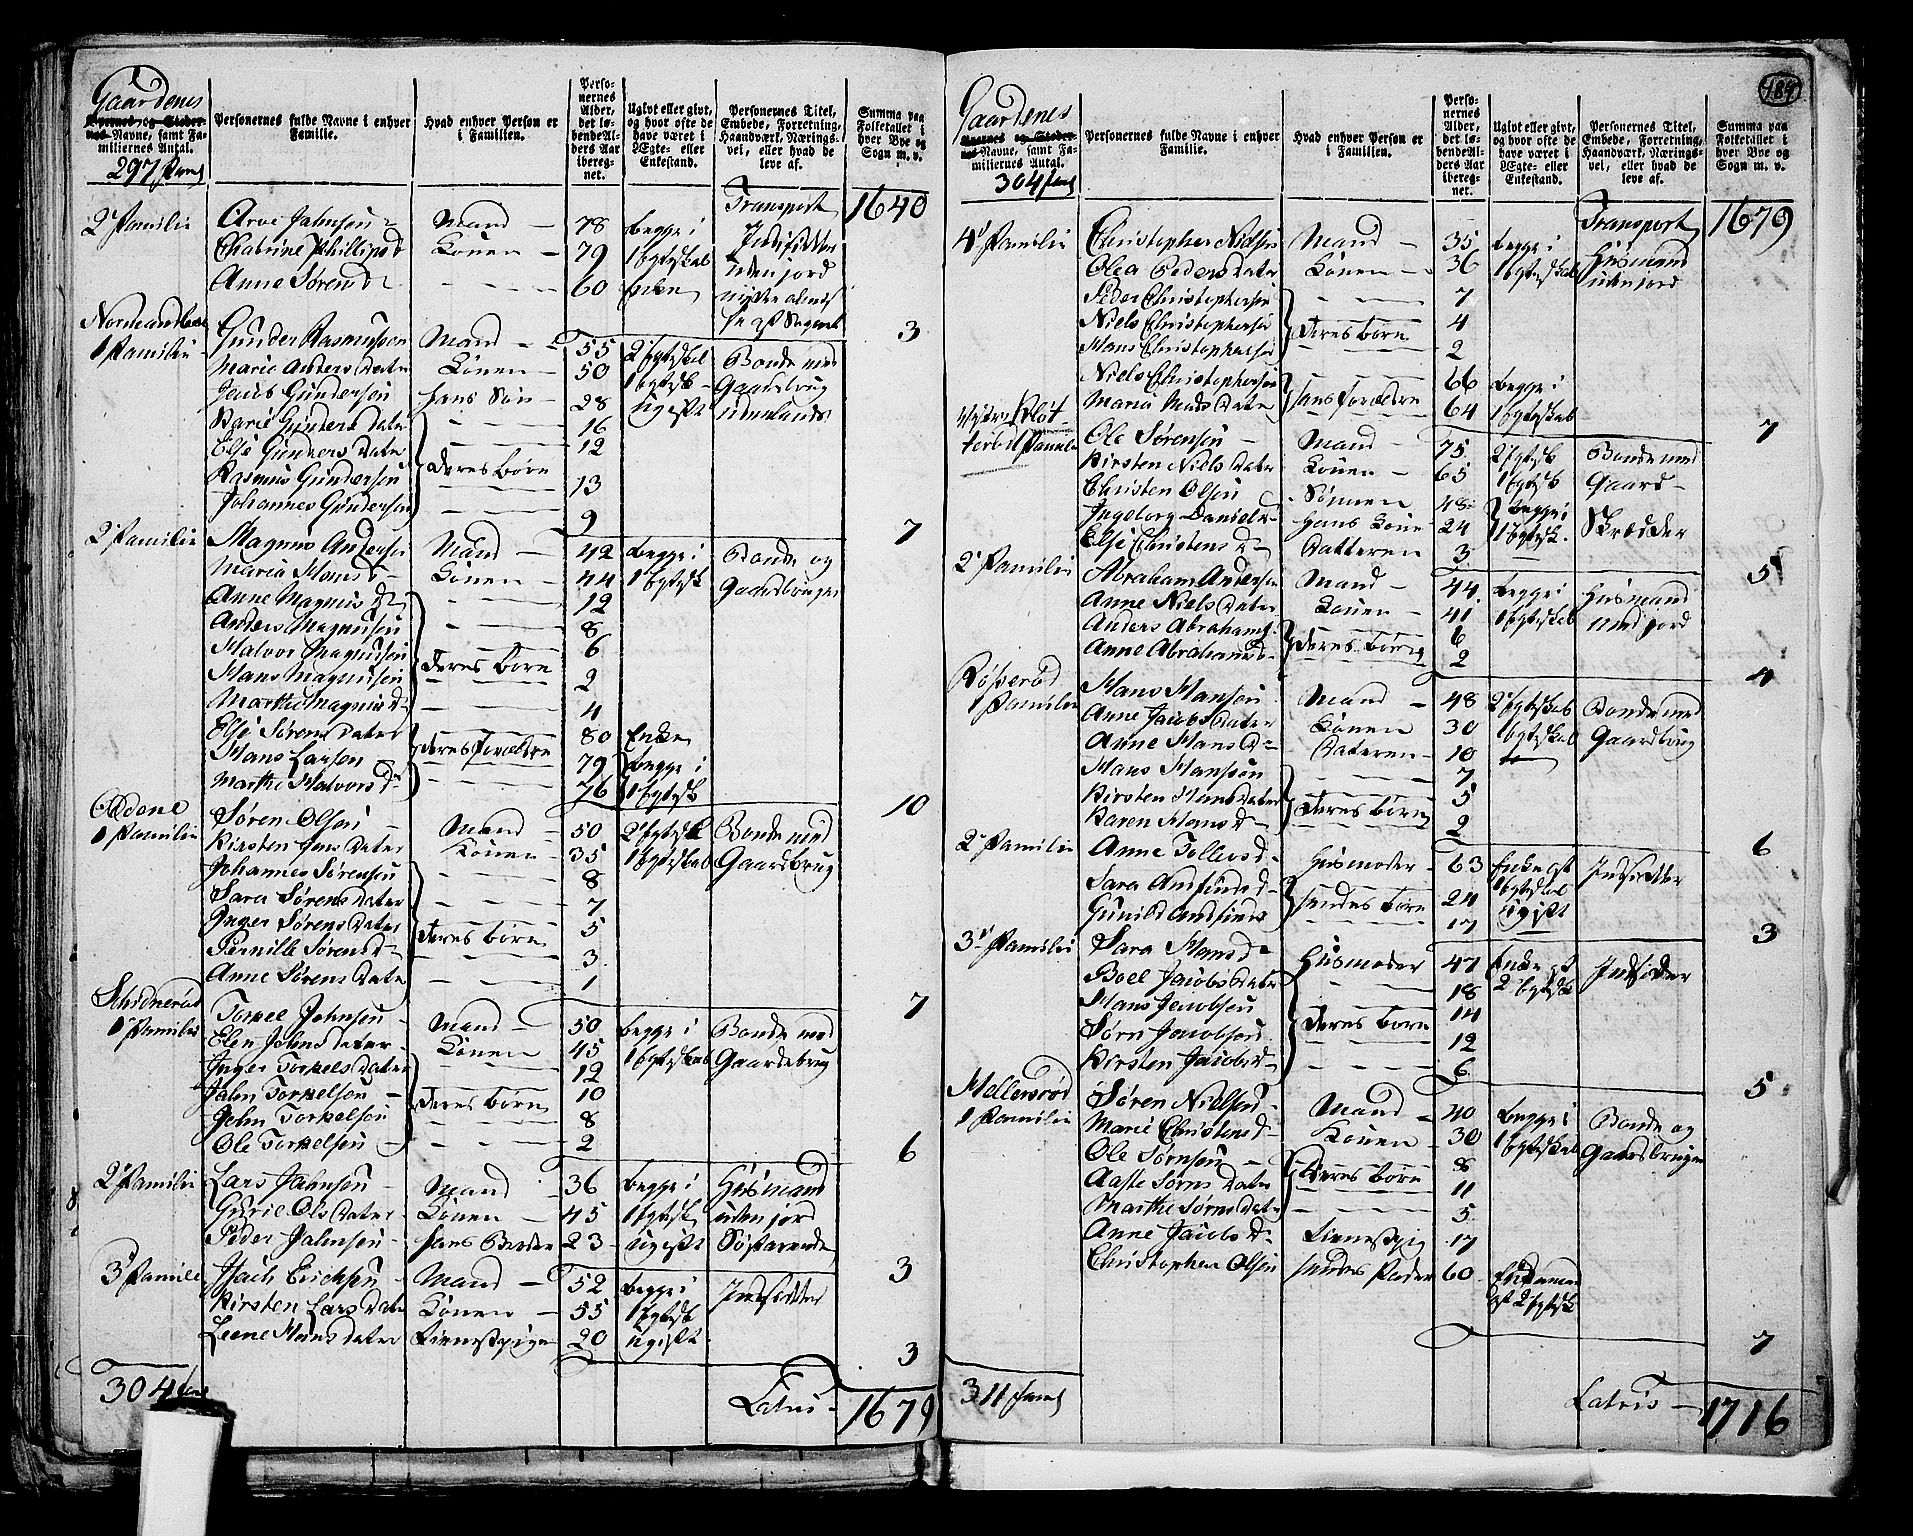 Gaardenes
Byernes og Stedernes Navne, samt Familiernes Antal.
297 Fam:
Personernes fulde Navne i enhver Familie.
Hvad enhver Person er i Familien.
Personernes Alder, det løbende Alders Aar iberegnet.
Ugivt eller givt, og hvor ofte de have været i Ægte- eller Enkestand.
Personernes Titel, Embede, Forretning, Haandværk, Næringsvei, eller hvad de leve af.
Summa paa Folketallet i hver Bye og Sogn m. v.
Transport 1640
2' Familie Arve Jahnsen Mand 78 begge i
Chatrine Phillipsd Konen 79 1 Egteskab uden jord
Anne Sørensd 60 Enke
3
1 Familie Gunder Rasmussen Mand 55 2 Egteskab Bonde med
Marie Anders Dater Konen 50 1 Egtesk Gaardbrug
Jacob Gundersen hans Søn 28 ugift
Karie Gunders Dater 16
Else Gunders Dater 12
Rasmus Gundersen deres børn 13
Johannes Gundersen 9
7
2' Familie Magnus Andersen Mand 42 begge i Bonde og
Maria Hansd Konen 44 1 Egtesk Gaardbruger
Anne Magnusd 12
Anders Magnusen 8
Halvor Magnusen 6
Hans Magnusen deres børn 2
Marthe Magnusd 4
Else Sørens Dater 80 Enke
Hans Larsen deres forældre 79 begge i
Marthe Halvorsd 76 1 Egtesk
10
1 Familie Søren Olsen Mand 50 2 Egtesk Bonde med
Kirsten Jens Dater Konen 35 1 Egteskab Gaardbrug
Johannes Sørensen 8
Sara Sørens Dater 7
Inger Sørens Dater deres børn 5
Pernille Sørensd 3
Anne Sørens Dater 1
7
1 Familie Torkel Jahnsen Mand 50 begge i Bonde med
Elen Johns dater Konen 45 1 Egteskab Gaardebrug
Inger Torkels Dater 12
Jahn Torkelsen deres børn 10
John Torkelsen 8
Ole Torkelsen 2
6
2' Familie Lars Jahnsen Mand 36 begge i Husmand
Gurie Ols Dater Konen 45 1 Egtesk uden jord
Peder Jahnsen hans Broder 23 ugift Søfarende
3
3' Familie Isach Erichsen Mand 52 begge i Indsidder
Kirsten Lars Dater Konen 55 1 Egtesk
Leene Hans dater Tienestpige 20 ugift
3
304 Fam
Latus 1679
184
Gaardenes
Byernes og Stedernes Navne, samt Familiernes Antal.
304 Fam
Personernes fulde Navne i enhver Familie.
Hvad enhver Person er i Familien.
Personernes Alder, det løbende Alders Aar iberegnet.
Ugivt eller givt, og hvor ofte de have været i Ægte- eller Enkestand.
Personernes Titel, Embede, Forretning, Haandværk, Næringsvei, eller hvad de leve af.
Summa paa Folketallet i hver Bye og Sogn m. v.
Transport 1679
4' Familie Christopher Nielsen Mand 35 begge i Husmand
Olea Peders Dater Konen 36 1 Egteskab uden jord
Peder Christophersen 7
Niels Christophersen deres børn 4
Hans Christophersen 2
Niels Christophersen 66 begge i
Maria Mads Dater hans forældre 64 1 Egteskab
7
1 Familie Ole Sørensen Mand 75 2 Egtesk Bonde med
Kirsten Niels Dater Konen 65 1 Egtesk Gaard
Christen Olsen Sønnen 48 begge i
Ingeborg Daniels Hans Kone 24 1 Egtesk. Skrædder
Else Christensd Datteren 3
5
2' Familie Abraham Andersen Mand 44 begge i Husmand
Anne Niels Dater Konen 41 1 Egteskab med jord
Anders Abrahams 6
Anne Abrahamsd deres børn 2
4
1 Familie Hans Hansen Mand 48 2 Egteskab Bonde med
Anne Jacobs Dater Konen 30 1 Egteskab Gaardbrug
Anne Hansd Dateren 10
Hans Hansøn 7
Kirsten Hans Dater deres børn 5
Karen Hansd 2
6
2' Familie Anne Tollersd Husmoder 63 Enke af Indsidder
Sara Amfundsd hendes børn 24 1 Egteskab
Gunild Amfinds 17 ugift
3
3' Familie Sara Hansd Husmoder 47 Enke af Indsidder
Boel Jacobs Dater 18 2 Egtesk
Hans Jacobsen 14
Sørn Jacobsen deres børn 12
Kirsten Jacobsd 6
5
Mellerrød
1 Familie Søren Nielsen Mand 40 begge i Bonde og
Marie Christensd Konen 30 1 Egteskab Gaardbruger
Ole Sørnsen 8
Aaste Sørns Dater deres børn 11
Marthe Sørns Dater 5
Anne Jacobsd Tienestpig 17
Christopher Olsen hendes Fader 60 Enkemand
af 2 Egtesk
7
311 Fam
Latris 1716